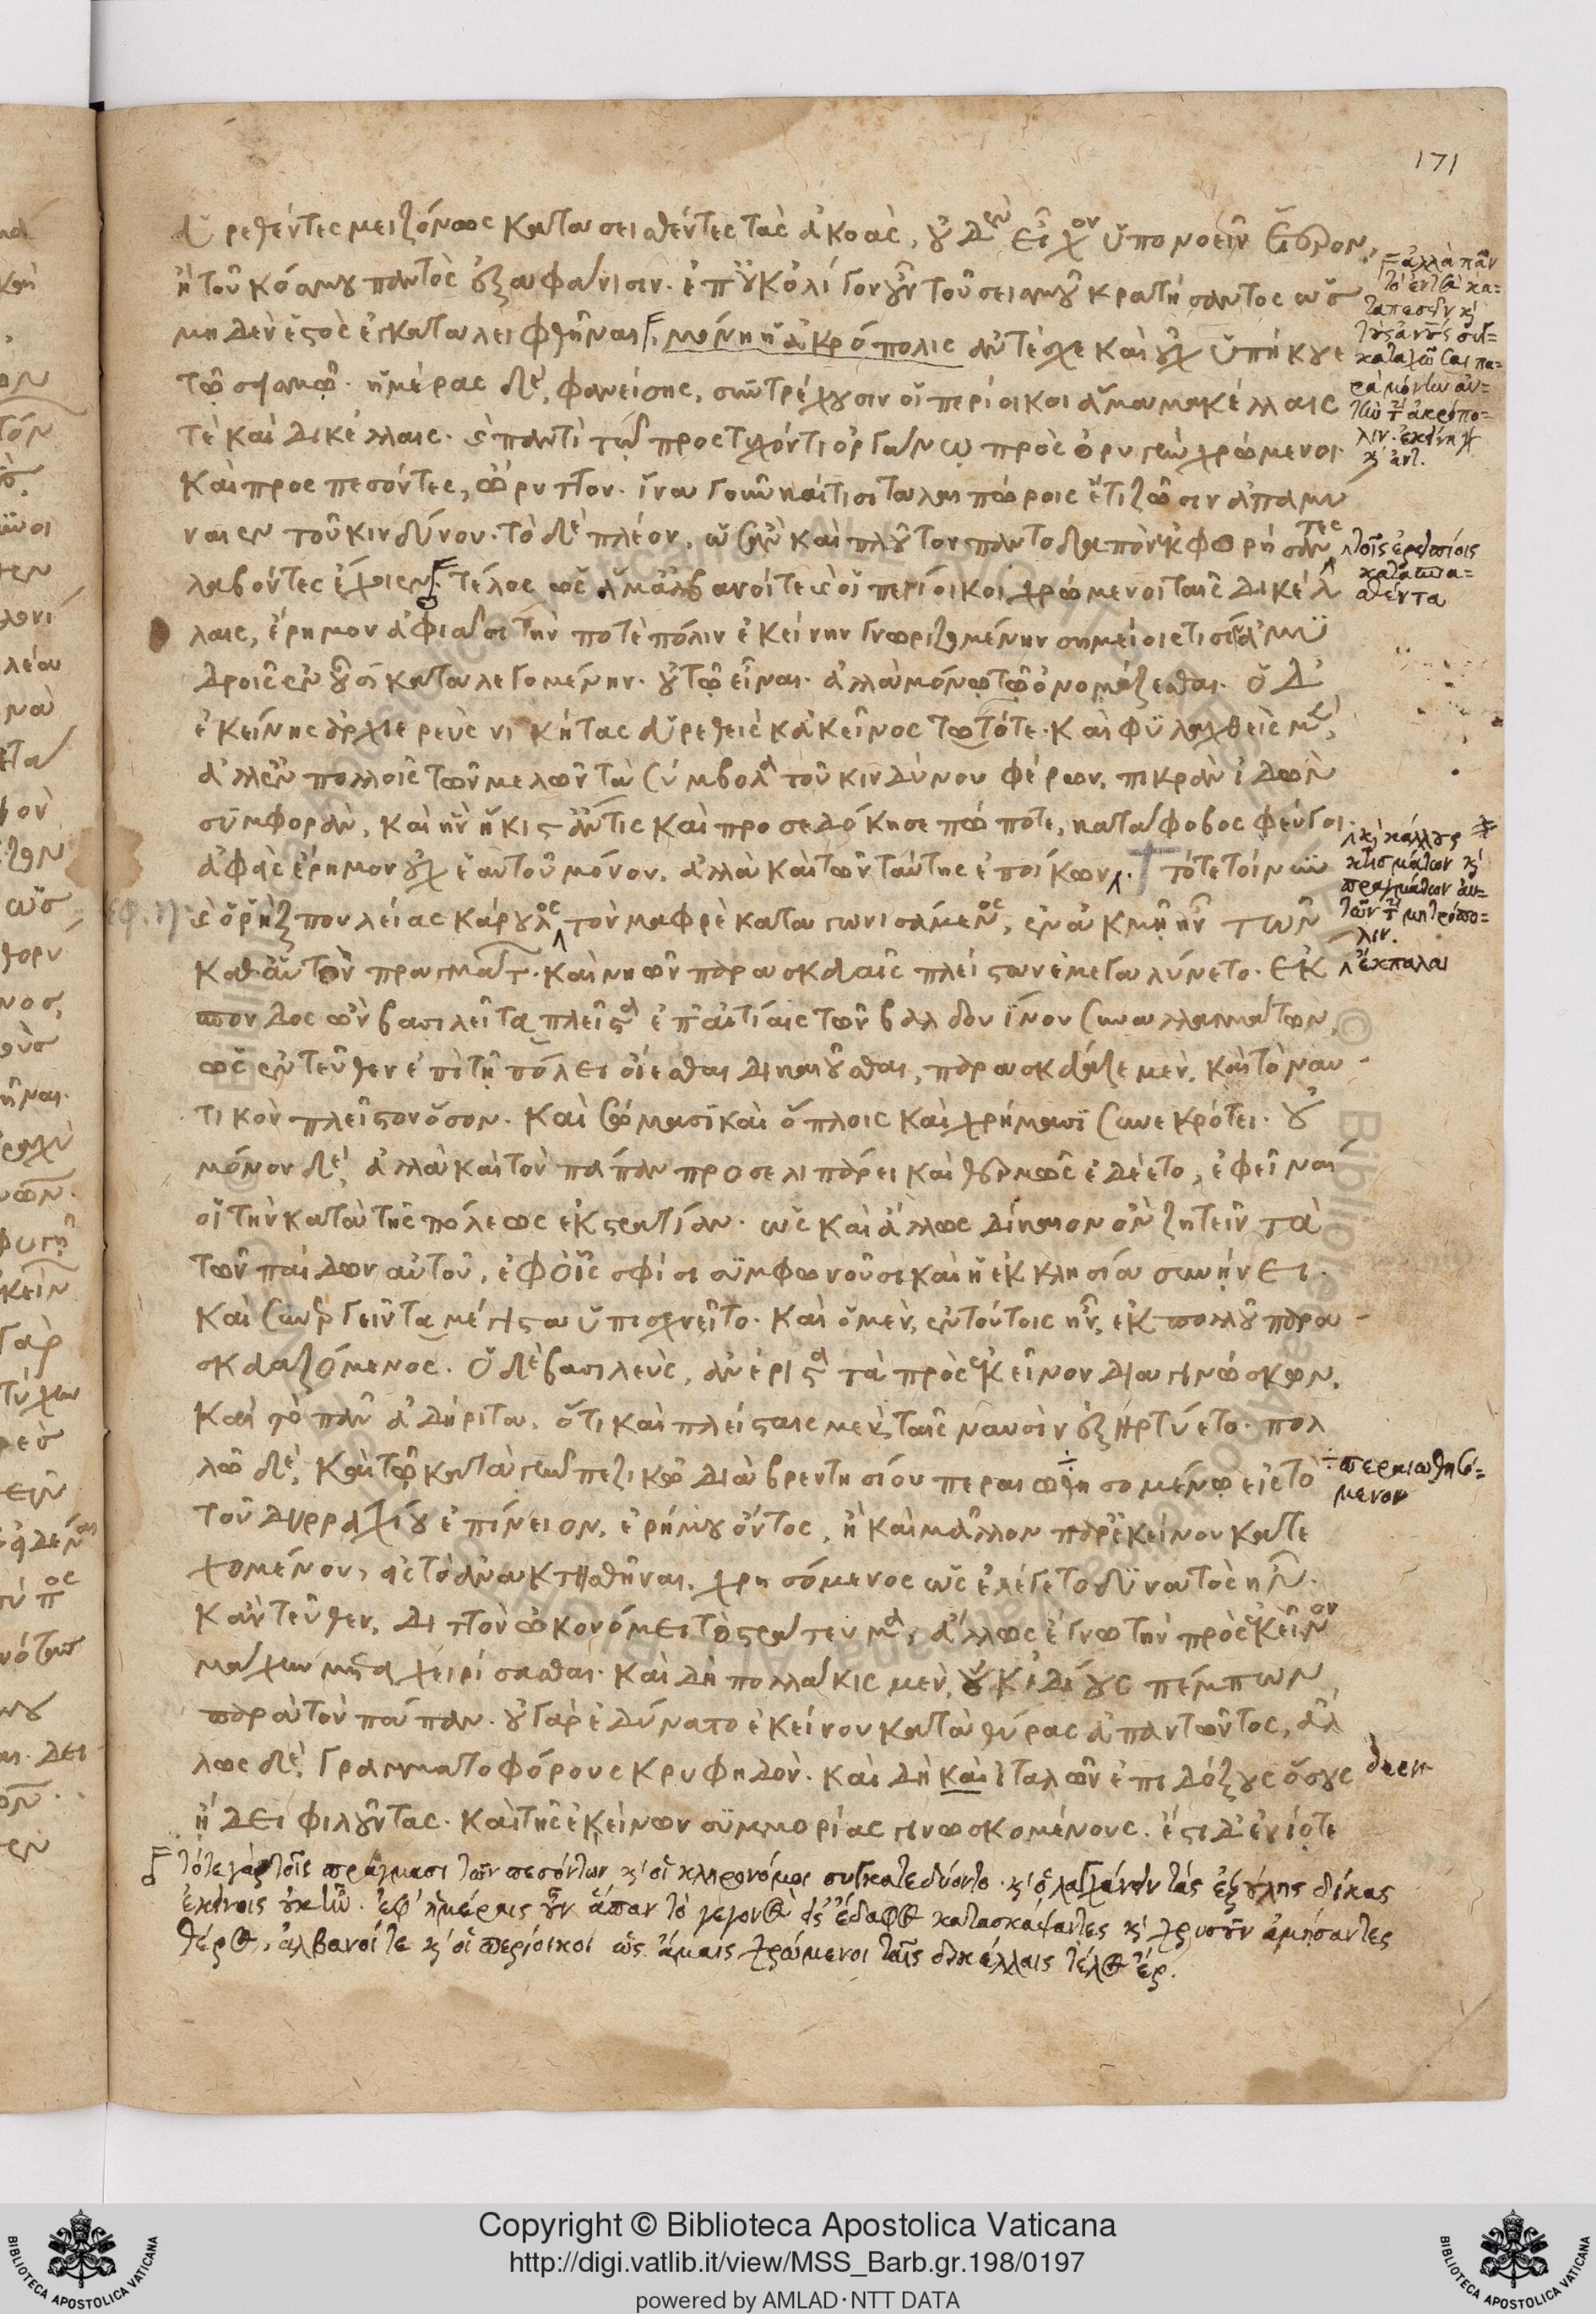 171
εὑρεθέντες μειζόνως κατασεισθέντες τὰς ἀκοάς, οὐδὲν εἶχον ὑπονοεῖν ἕτερον,
ἢ τοῦ κόσμου παντὸς ἐξαφάνισιν. ἐπ' οὐκ ὀλίγον γοῦν τοῦ σεισμοῦ κρατήσαντος ὡς
μηδὲν ἑστὸς ἐγκαταλειφθῆναι, μόνη ἡ ἀκρόπολις ἀντέσχε καὶ οὐχ ὑπήκουε
τῷ σεισμῷ. ἡμέρας δὲ φανείσης, συντρέχουσιν οἱ περίοικοι ἅμα μακέλλαις
τὲ καὶ δικέλλαις. καὶ παντὶ τῷ προστυχόντι ὀργάνῳ πρὸς ὀρυγὴν χρώμενοι.
καὶ προσπεσόντες, ὤρυττον. ἵνα γοῦν καί τισι ταλαιπώροις ἔτι ζῶσιν ἀπαμύ
ναιεν τοῦ κινδύνου. τὸ δὲ πλέον, ὡς ἂν καὶ πλοῦτον παντοδαπὸν ἐκφορήσαντες
λαβόντες ἔχοιεν. τέλος ὡς ἅμ' ἀλβανοί τε καὶ οἱ περίοικοι χρώμενοι ταῖς δικέλ
λαις, ἔρημον ἀφιᾶσι τὴν ποτὲ πόλιν ἐκείνην γνωριζομένην σημείοις τισὶν ἀμυ
δροῖς ἐν οὖσι καταλεγομένην. οὐ τῷ εἶναι. ἀλλὰ μόνῳ τῷ ὀνομάζεσθαι. ὁ δ'
ἐκείνης ἀρχιερεὺς νικήτας εὑρεθεὶς κἀκεῖνος τῷ τότε. καὶ φυλαχθεὶς μὲν,
ἀλλ' ἐν πολλοῖς τῶν μελῶν τὰ σύμβολα τοῦ κινδύνου φέρων, πικρὰν ἰδὼν
συμφορὰν, καὶ ἣν ἥκιστ' ἄν τις καὶ προσεδόκησε πώποτε, κατάφοβος φεύγει.
ἀφεὶς ἔρημον οὐχ ἑαυτοῦ μόνον, ἀλλὰ καὶ τῶν ταύτης ἐποίκων. τότε τοίνυν
καὶ ὁ ῥὴξ πουλείας κάρουλος τὸν μαφρὲ καταγωνισάμενος, ἐν ἀκμῇ ἦν τῶν
καθ' αὑτὸν πραγμάτων. καὶ νηῶν παρασκευαῖς πλείστων ἐμεγαλύνετο. ἐκ
σπονδος ὢν βασιλεῖ τὰ πλεῖστα ἐπ' αἰτίαις τῶν βαλδουΐνου συναλλαγμάτων,
ὡς ἐντεῦθεν ἐπὶ τῇ πόλει οἴεσθαι δικαιοῦσθαι, παρασκεύαζε μὲν, καὶ τὸ ναυ-
τικὸν πλεῖστον ὅσον. καὶ σώμασι καὶ ὅπλοις καὶ χρήμασι συνεκρότει. οὐ
μόνον δὲ, ἀλλὰ καὶ τὸν πάπαν προσελιπάρει καὶ θερμῶς ἐδέετο, ἐφεῖναί
οἱ τὴν κατὰ τῆς πόλεως ἐκστρατείαν. ὡς καὶ ἄλλως δίκαιον ὂν ζητεῖν τὰ
τῶν παίδων αὐτοῦ, ἐφ' οἷς σφίσι συμφωνοῦσι καὶ ἡ ἐκκλησία συνῄνει.
καὶ συνεργεῖν τὰ μέγιστα ὑπισχνεῖτο. καὶ ὁ μὲν, ἐν τούτοις ἦν, ἐκ πολλοῦ παρα-
σκευαζόμενος. ὁ δὲ βασιλεὺς, ἀνέριστα τὰ πρὸς ἐκεῖνον διαγινώσκων,
καὶ τὸ πᾶν ἀδήριτα, ὅτι καὶ πλείσταις μὲν ταῖς ναυσὶν ἐξηρτύετο. πολ
λῷ δὲ, καὶ τῷ κατὰ γῆν πεζικῷ διὰ βρεντησίου περαιωθησομένῳ εἰς τὸ
τοῦ δυρραχίου ἐπίνειον, ἐρήμου ὄντος, ἢ καὶ μᾶλλον παρ' ἐκείνου κατε
χομένου, εἰς τὸ ἀνακτηθῆναι, χρησόμενος ὡς ἐλέγετο δυνατὸς ἦν.
κἀντεῦθεν, διττὸν ᾠκονόμει τὸ στράτευμα, ἄλλως ἔγνω τὴν πρὸς ἐκεῖνον
μάχην μεταχειρίσασθαι. καὶ δὴ πολλάκις μὲν, οὐκ ἰδίους πέμπων
παρὰ τὸν πάπαν. οὐ γὰρ ἐδύνατο ἐκείνου κατὰ θύρας ἀπαντῶντος, ἄλ
λως δὲ, γραμματοφόρους κρυφηδόν. καὶ δὴ καὶ ἰταλῶν ἐπιδόξους ὅσους
ᾔδει φιλοῦντας. καὶ τῆς ἐκείνων συμμορίας γινωσκομένους. ἔστι δ' ἐνίοτε
ἀλλὰ πᾶν
τὸ ἐντὸς κα-
ταπεσεῖν καὶ
τοὺς ἀνθρώπους συγ-
καταχῶσαι πα-
ρὰ μόνην αὐ-
τὴν τὴν ἀκρόπο-
λιν. ἐκείνη γὰρ
καὶ ἀντ.
τοῖς ἐρειπίοις
καταπα-
σθέντα
καὶ κάλλους
κτισμάτων καὶ
πραγμάτων αὐ-
τῶν τὴν μητρόπο-
λιν.
ἔκπαλαι
περαιωθησό-
μενον
τότε γὰρ τοῖς πράγμασι τῶν πεσόντων καὶ οἱ κληρονόμοι συγκατεδύοντο. καὶ ὁ λαγχάνων τὰς ἐξούλης δίκας
ἐκείνοις οὐκ ἦν. ἐφ' ἡμέραις οὖν ἅπαν τὸ γεγονὸς εἰς ἔδαφος κατασκάψαντες καὶ χρυσοῦν ἀμήσαντες
θέρος, ἀλβανοί τε καὶ οἱ περίοικοι ὡς ἅμαις χρώμενοι ταῖς δικέλλαις τέλος ἔρ.
Copyright © Biblioteca Apostolica Vaticana
http://digi.vatlib.it/view/MSS_Barb.gr.198/0197
powered by AMLAD·NTT DATA